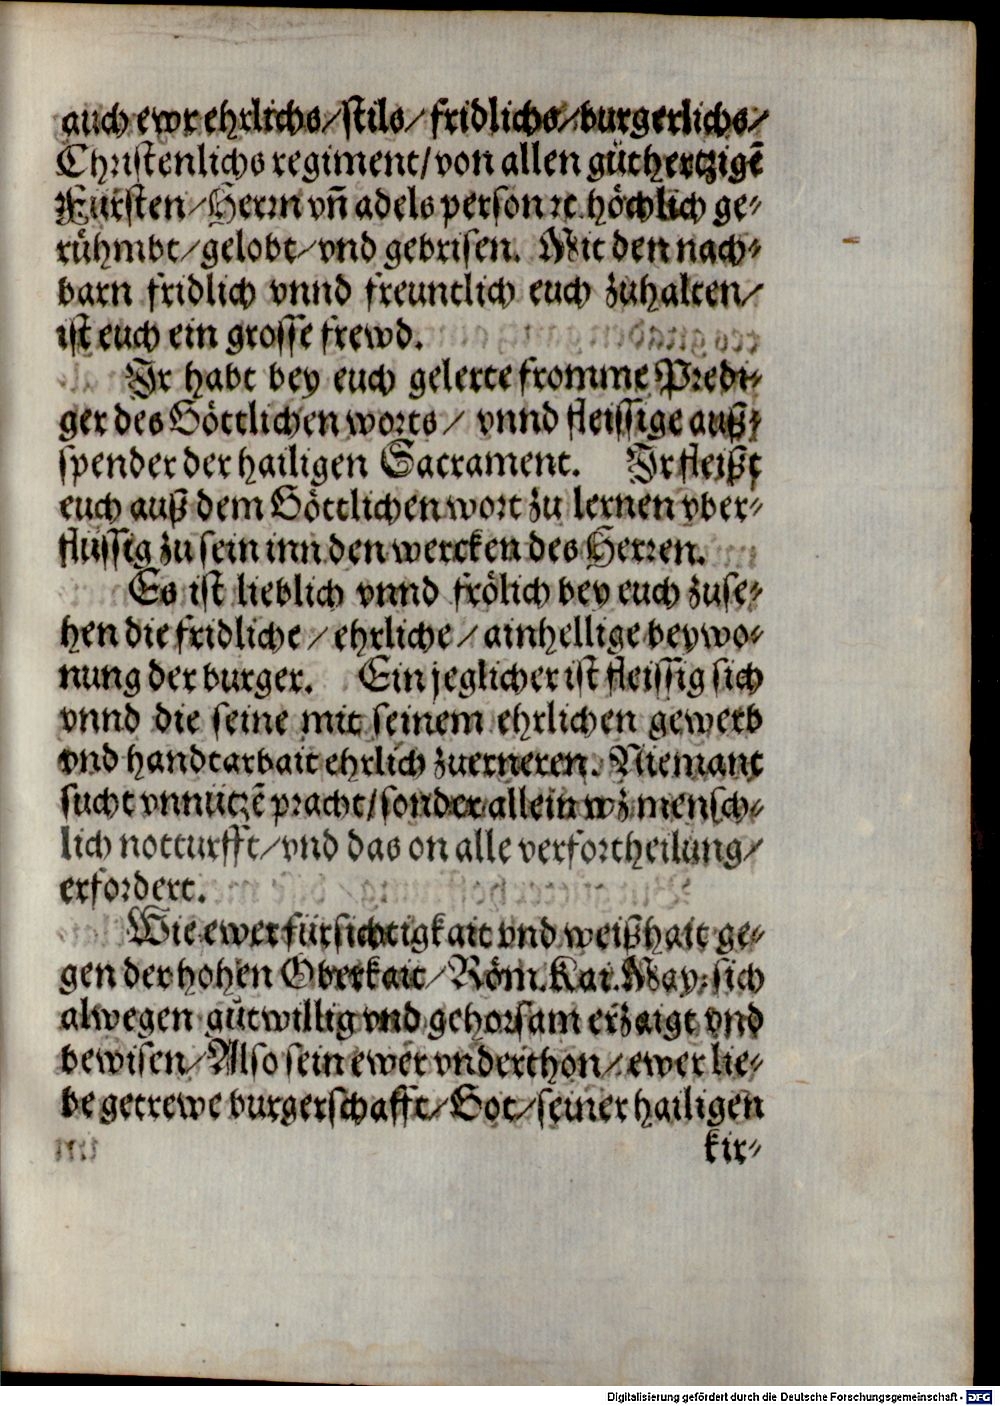 auch ewr ehrlichs/ stils/ fridlichs/ burgerlichs/
Christenlichs regiment/ von allen gůthertzigē
Fürsten/ Herrn vñ adels person ꝛc. höchlich ge⸗
rühmbt/ gelobt/ vnd gebrisen. Mit den nach⸗
barn fridlich vnnd freuntlich euch zuhalten/
ist euch ein grosse frewd.
Ir habt bey euch gelerte fromme Predi⸗
ger des Göttlichen worts/ vnnd fleissige auß⸗
spender der hailigen Sacrament. Ir fleißt
euch auß dem Göttlichen wort zu lernen vber⸗
flüssig zu sein inn den wercken des Herren.
Es ist lieblich vnnd frölich bey euch zuse⸗
hen die fridliche/ ehrliche/ ainhellige beywo⸗
nung der burger. Ein jeglicher ist fleissig sich
vnnd die seine mit seinem ehrlichen gewerb
vnd handtarbait ehrlich zuerneren. Niemant
sucht vnnützē pracht/ sonder allein wz mensch⸗
lich notturfft/ vnd das on alle verfortheilung/
erfordert.
Wie ewer fürsichtigkait vnd weißhait ge⸗
gen der hohen Oberkait/ Röm. Kai. May. sich
alwegen gůtwillig vnd gehorsam erzaigt vnd
bewisen/ Also sein ewer vnderthon/ ewer lie⸗
be getrewe burgerschafft/ Got/ seiner hailigen
kir⸗
Digitalisierung gefördert durch die Deutsche Forschungsgemeinschaft - DFG